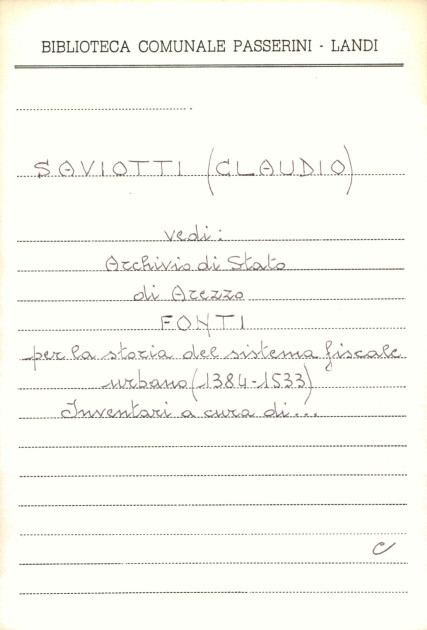 BIBLIOTECA COMUNALE PASSERINI - LANDI
SAVIOTTI (CLAUDIO)
vedi:
Archivio di Stato
di Arezzo
FONTI
per la storia del sistema fiscale
urbano (1384-1533)
Inventari a cura di...
C